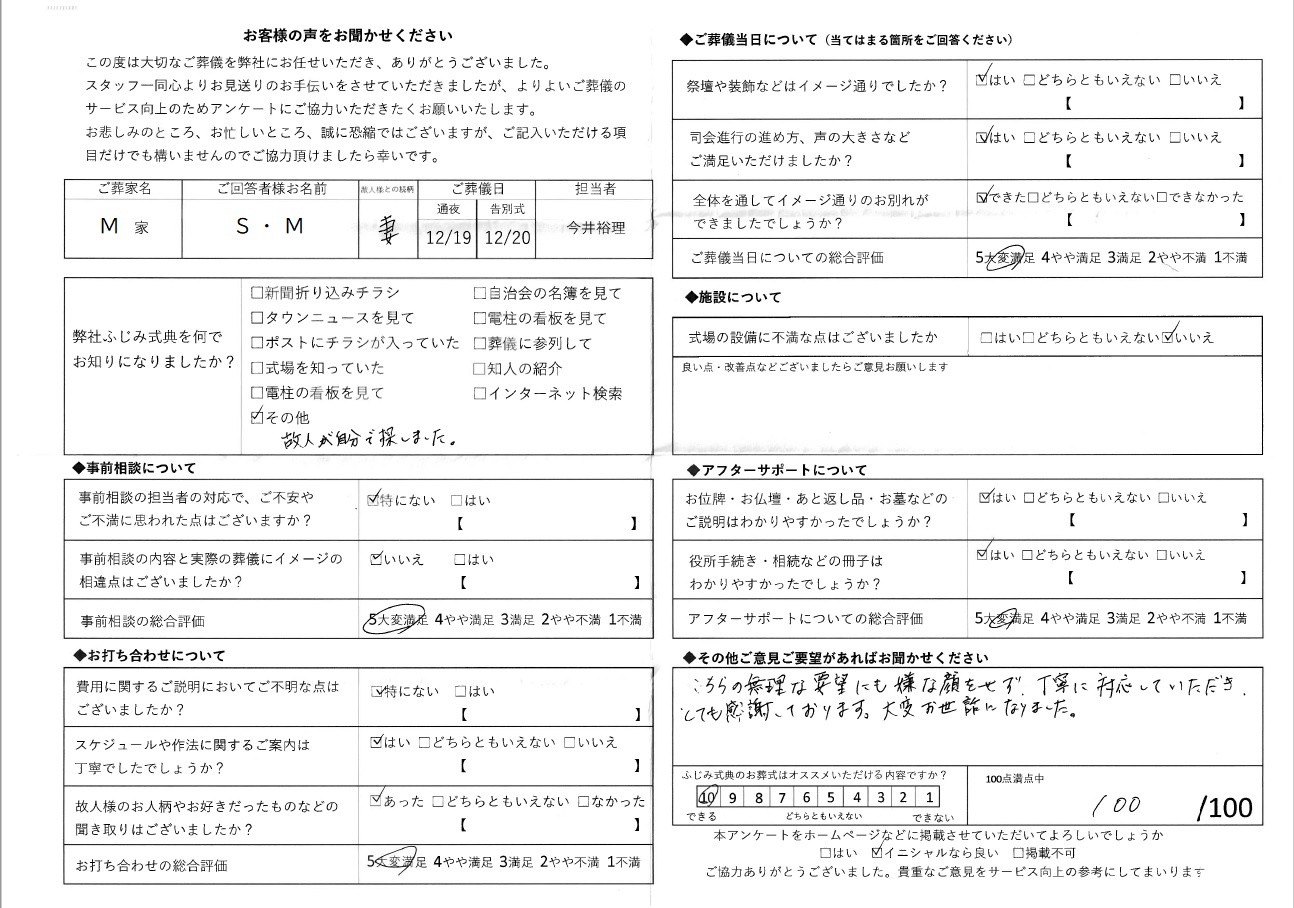 お客様の声をお聞かせください
この度は大切なご葬儀を弊社にお任せいただき、ありがとうございました。
スタッフ一同心よりお見送りのお手伝いをさせていただきましたが、よりよいご葬儀の
サービス向上のためアンケートにご協力いただきたくお願いいたします。
お悲しみのところ、お忙しいところ、誠に恐縮ではございますが、ご記入いただける項
目だけでも構いませんのでご協力頂けましたら幸いです。
ご葬家名 ご回答者様お名前 故人様との続柄 ご葬儀日 担当者
通夜 告別式
M 家 S・M 妻 12/19 12/20 今井裕理
弊社ふじみ式典を何で
お知りになりましたか？
□新聞折り込みチラシ □自治会の名簿を見て
□タウンニュースを見て □電柱の看板を見て
□ポストにチラシが入っていた □葬儀に参列して
□式場を知っていた □知人の紹介
□電柱の看板を見て □インターネット検索
☑その他
故人が自分で探しました。
◆事前相談について
事前相談の担当者の対応で、ご不安や
ご不満に思われた点はございますか？
☑特にない □はい
【 】
事前相談の内容と実際の葬儀にイメージの
相違点はございましたか？
☑いいえ □はい
【 】
事前相談の総合評価 5大変満足 4やや満足 3満足 2やや不満 1不満
◆お打ち合わせについて
費用に関するご説明においてご不明な点は
ございましたか？
☑特にない □はい
【 】
スケジュールや作法に関するご案内は
丁寧でしたでしょうか？
☑はい □どちらともいえない □いいえ
【 】
故人様のお人柄やお好きだったものなどの
聞き取りはございましたか？
☑あった □どちらともいえない □なかった
【 】
お打ち合わせの総合評価 5大変満足 4やや満足 3満足 2やや不満 1不満
◆ご葬儀当日について（当てはまる箇所をご回答ください）
祭壇や装飾などはイメージ通りでしたか？
☑はい □どちらともいえない □いいえ
【 】
司会進行の進め方、声の大きさなど
ご満足いただけましたか？
☑はい □どちらともいえない □いいえ
【 】
全体を通してイメージ通りのお別れが
できましたでしょうか？
☑できた□どちらともいえない□できなかった
【 】
ご葬儀当日についての総合評価 5大変満足 4やや満足 3満足 2やや不満 1不満
◆施設について
式場の設備に不満な点はございましたか □はい□どちらともいえない☑いいえ
良い点・改善点などございましたらご意見お願いします
◆アフターサポートについて
お位牌・お仏壇・あと返し品・お墓などの
ご説明はわかりやすかったでしょうか？
☑はい □どちらともいえない □いいえ
【 】
役所手続き・相続などの冊子は
わかりやすかったでしょうか？
☑はい □どちらともいえない □いいえ
【 】
アフターサポートについての総合評価 5大変満足 4やや満足 3満足 2やや不満 1不満
◆その他ご意見ご要望があればお聞かせください
こちらの無理な要望にも嫌な顔をせず、丁寧に対応していただき、
とても感謝しております。大変お世話になりました。
ふじみ式典のお葬式はオススメいただける内容ですか？
10 9 8 7 6 5 4 3 2 1
できる どちらともいえない できない
100点満点中
100 /100
本アンケートをホームページなどに掲載させていただいてよろしいでしょうか
□はい ☑イニシャルなら良い □掲載不可
ご協力ありがとうございました。貴重なご意見をサービス向上の参考にしてまいります